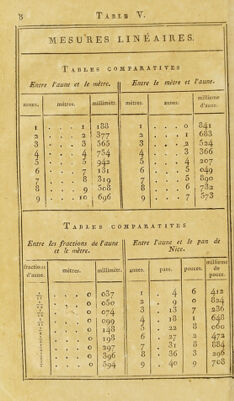 8 TABLE V.
MESURES LINÉAIRES.
TABLES COMPARATIVES
Entre l'aune et le mètre. Entre le mètre et l'aune.
aunes. mètres. millimètr. mètres. aunes. millième d'aune.
1 . . . 1 188 1 . . . 0 841
2 . . . 2 377 2 . . . 1 683
3 . . . 3 565 3 . . . 2 524
4 . . . 4 754 4 . . . 3 366
5 . . . 5 942 5 . . . 4 207
6 . . . 7 131 6 . . . 5 049
7 . . . 8 319 7 . . . 5 890
8 . . . 9 508 8 . . . 6 732
9 . . . 10 696 9 . . . 7 573
TABLES COMPARATIVES
Entre les fractions de l'aune et le mètre. Entre l'aune et le pan de Nice.
fractions d'aune. mètres. millimètr. aunes. pans. pouces. millième de pouce.
. . . 0 037 1 . 4 6 412
. . . 0 050 2 . 9 0 824
. . . 0 074 3 . 13 7 236
. . . 0 099 4 . 18 1 648
. . . 0 148 5 . 22 8 060
. . . 0 198 6 . 27 2 472
. . . 0 297 7 . 31 8 884
. . . 0 396 8 . 36 3 296
. . . 0 594 9 . 40 9 708